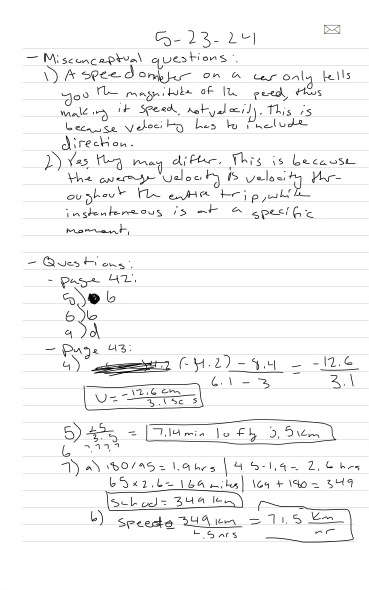 5-23-24
- Misconceptual questions:
1) A speedometer on a car only tells
you the magnitude of the peed, thus
making it speed, not velocity. This is
because velocity has to include
direction.
2) Yes, they may differ. This is because
the average velocity is velocity thr-
oughout the entire trip, while
instantaneous is at a specific
moment.
- Questions:
- page 42:
5) b
6) b
9) d
- Page 43:
4) (-4.2) - 8.4 / 6.1 - 3 = -12.6 / 3.1
V = -12.6 cm / 3.1 s
5) 25 / 3.5 = 7.14 min to fly 3.5 km
6 ????
7) a) 180/95 = 1.9 hrs | 4.5-1.9 = 2.6 hrs
65 x 2.6 = 169 miles | 169 + 180 = 349
school = 349 km
b) speed = 349 km / 4.5 hrs = 71.5 km / hr